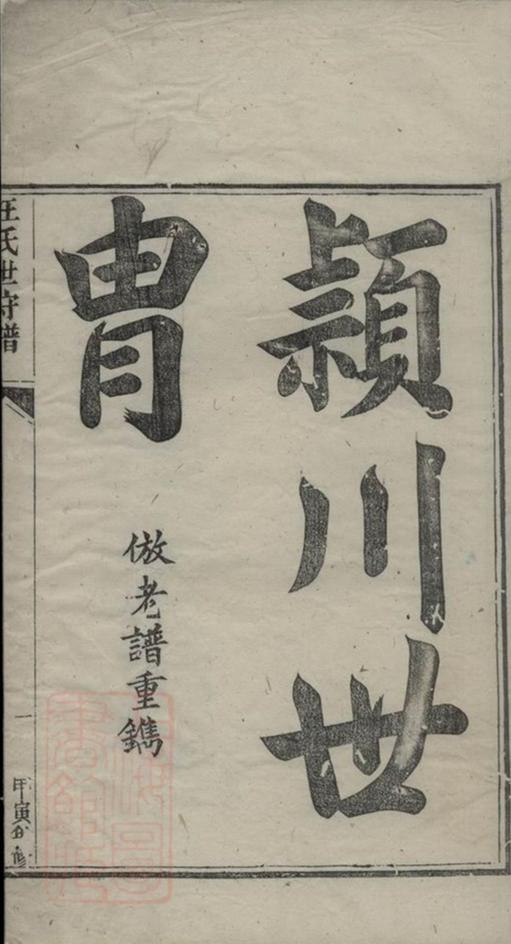 頴川世
冑
倣老譜重鐫
汪氏世守譜
一
甲寅公修